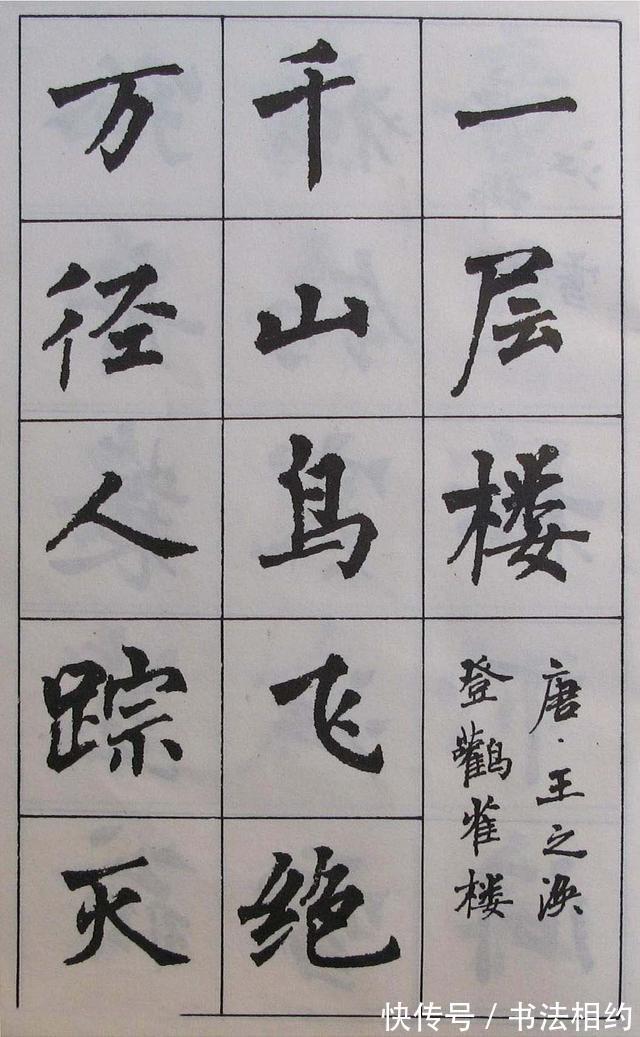 一层楼
唐·王之涣
登鹳雀楼
千山鸟飞绝
万径人踪灭
快传号 / 书法相约